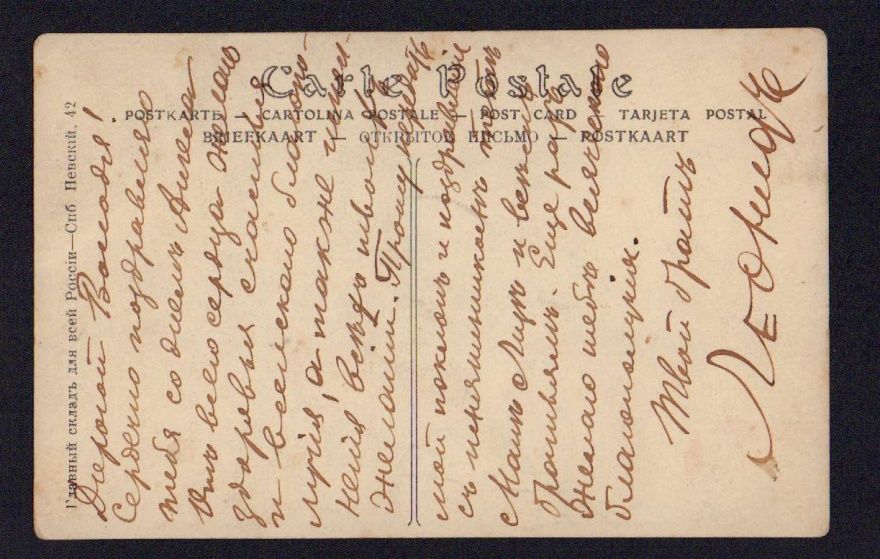 Carte Postale
POSTKARTE — CARTOLINA POSTALE — POST CARD — TARJETA POSTAL
BRIEFKAART — ОТКРЫТОЕ ПИСЬМО — POSTKAART
Главный складъ для всей Россіи—Спб Невскій, 42
Дорогой Володя!
Сердечно поздравляю
тебя со днемъ Ангела
Отъ всего сердца желаю
здоровья счастья
и всяческаго благопо-
лучія, а также исполне-
нія всѣхъ твоихъ
желаній. Прошу передать
мой поклонъ и поздравленія
съ
Мамѣ и всѣмъ
братьямъ. Еще разъ
желаю тебѣ всяческаго
благополучія.
Твой братъ
Леонидъ